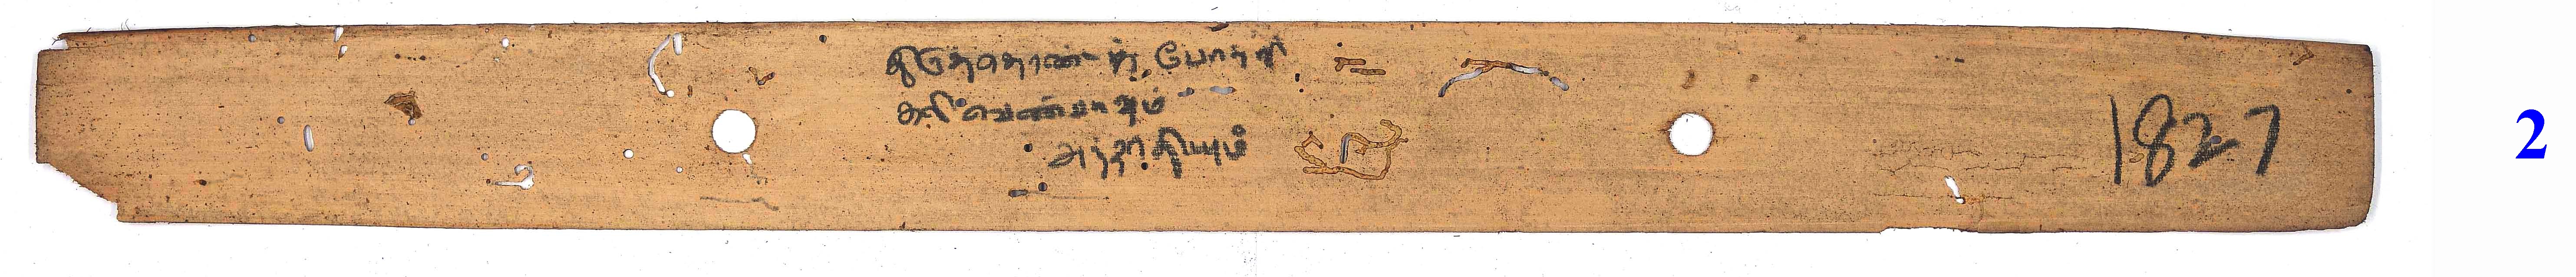 போற்றி
கலி வெண்பாவும்
அந்தாதியும்
1827
2